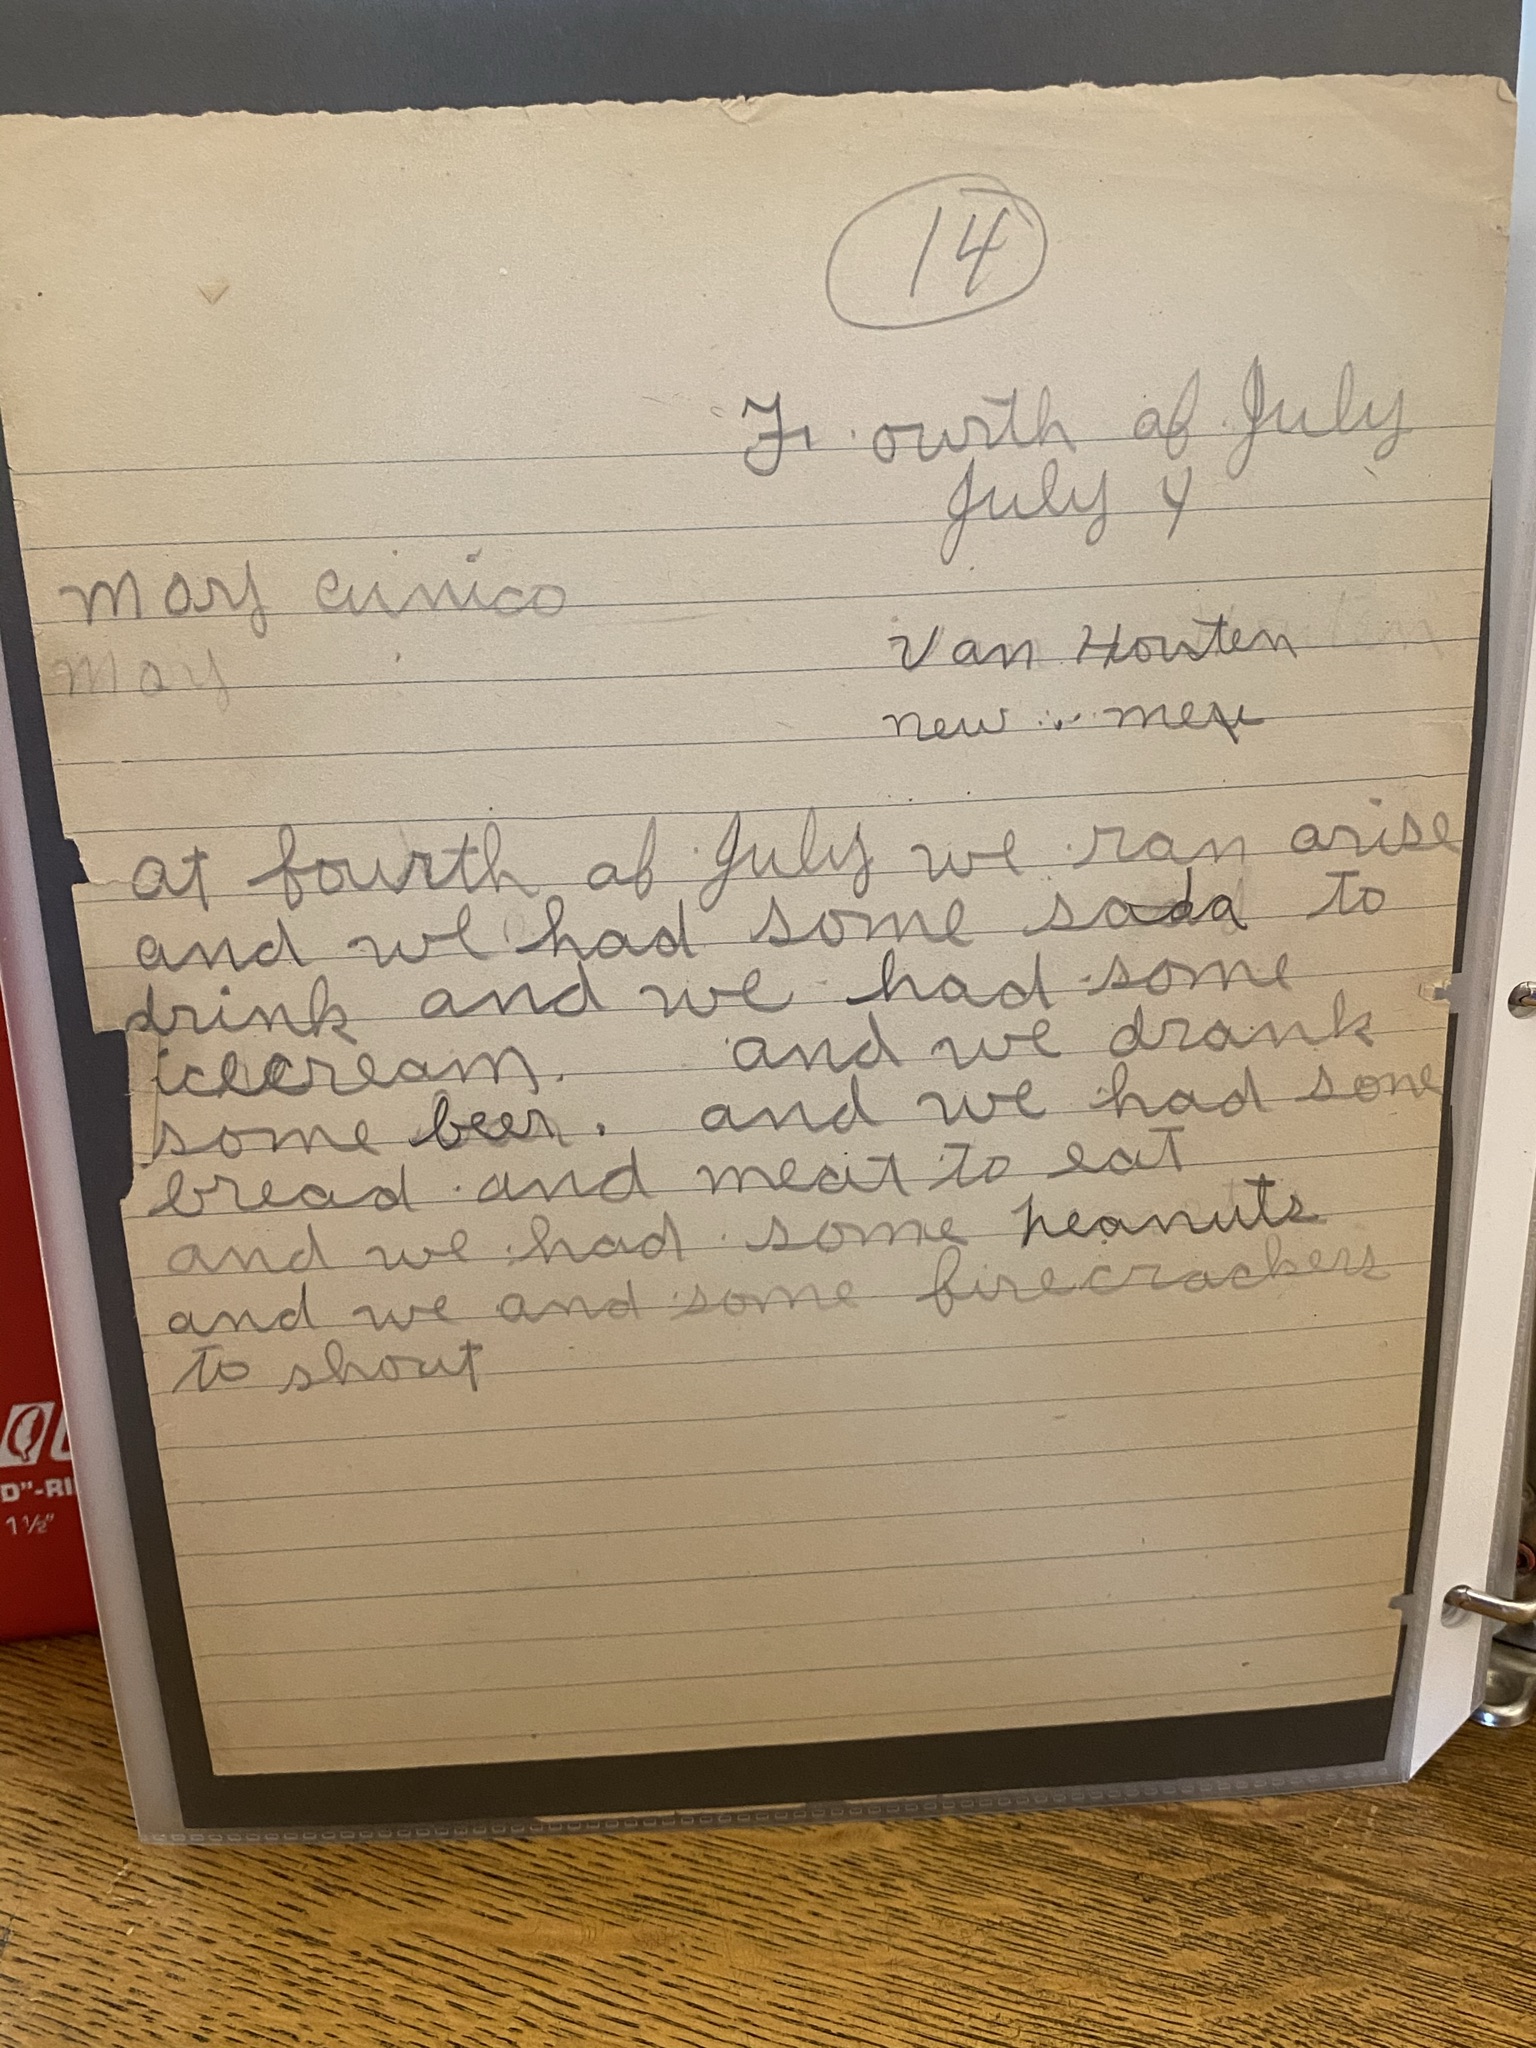 14
Fourth of July
July 4
Mary Cunico
May
Van Houten
new mex
at fourth of July we ran arise
and we had some soda to
drink and we had some
icecream. and we drank
some beer. and we had some
bread and meat to eat
and we had some peanuts
and we and some firecrackers
to shout
D"-RI
1 ½"